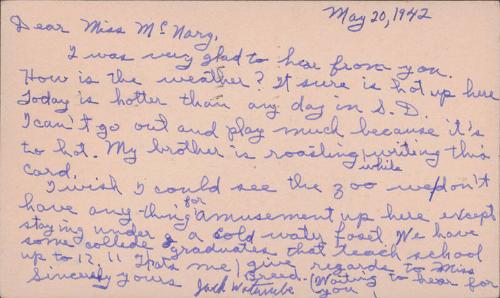 May 20, 1942
Dear Miss McNary,
I was very glad to hear from you.
How is the weather? It sure is hot up here
Today is hotter than any day in S.D.
I can't go out and play much because it's
to hot. My brother is roasting while writing this
card.
I wish I could see the zoo we don't
have any thing for amusement up here except
staying under a cold water faset. We have
some collede graduates that teach school
up to 12. !! Thats me / give regards to Miss
Breed. (Waiting to hear for
Sincerely yours Jack Watanabe you